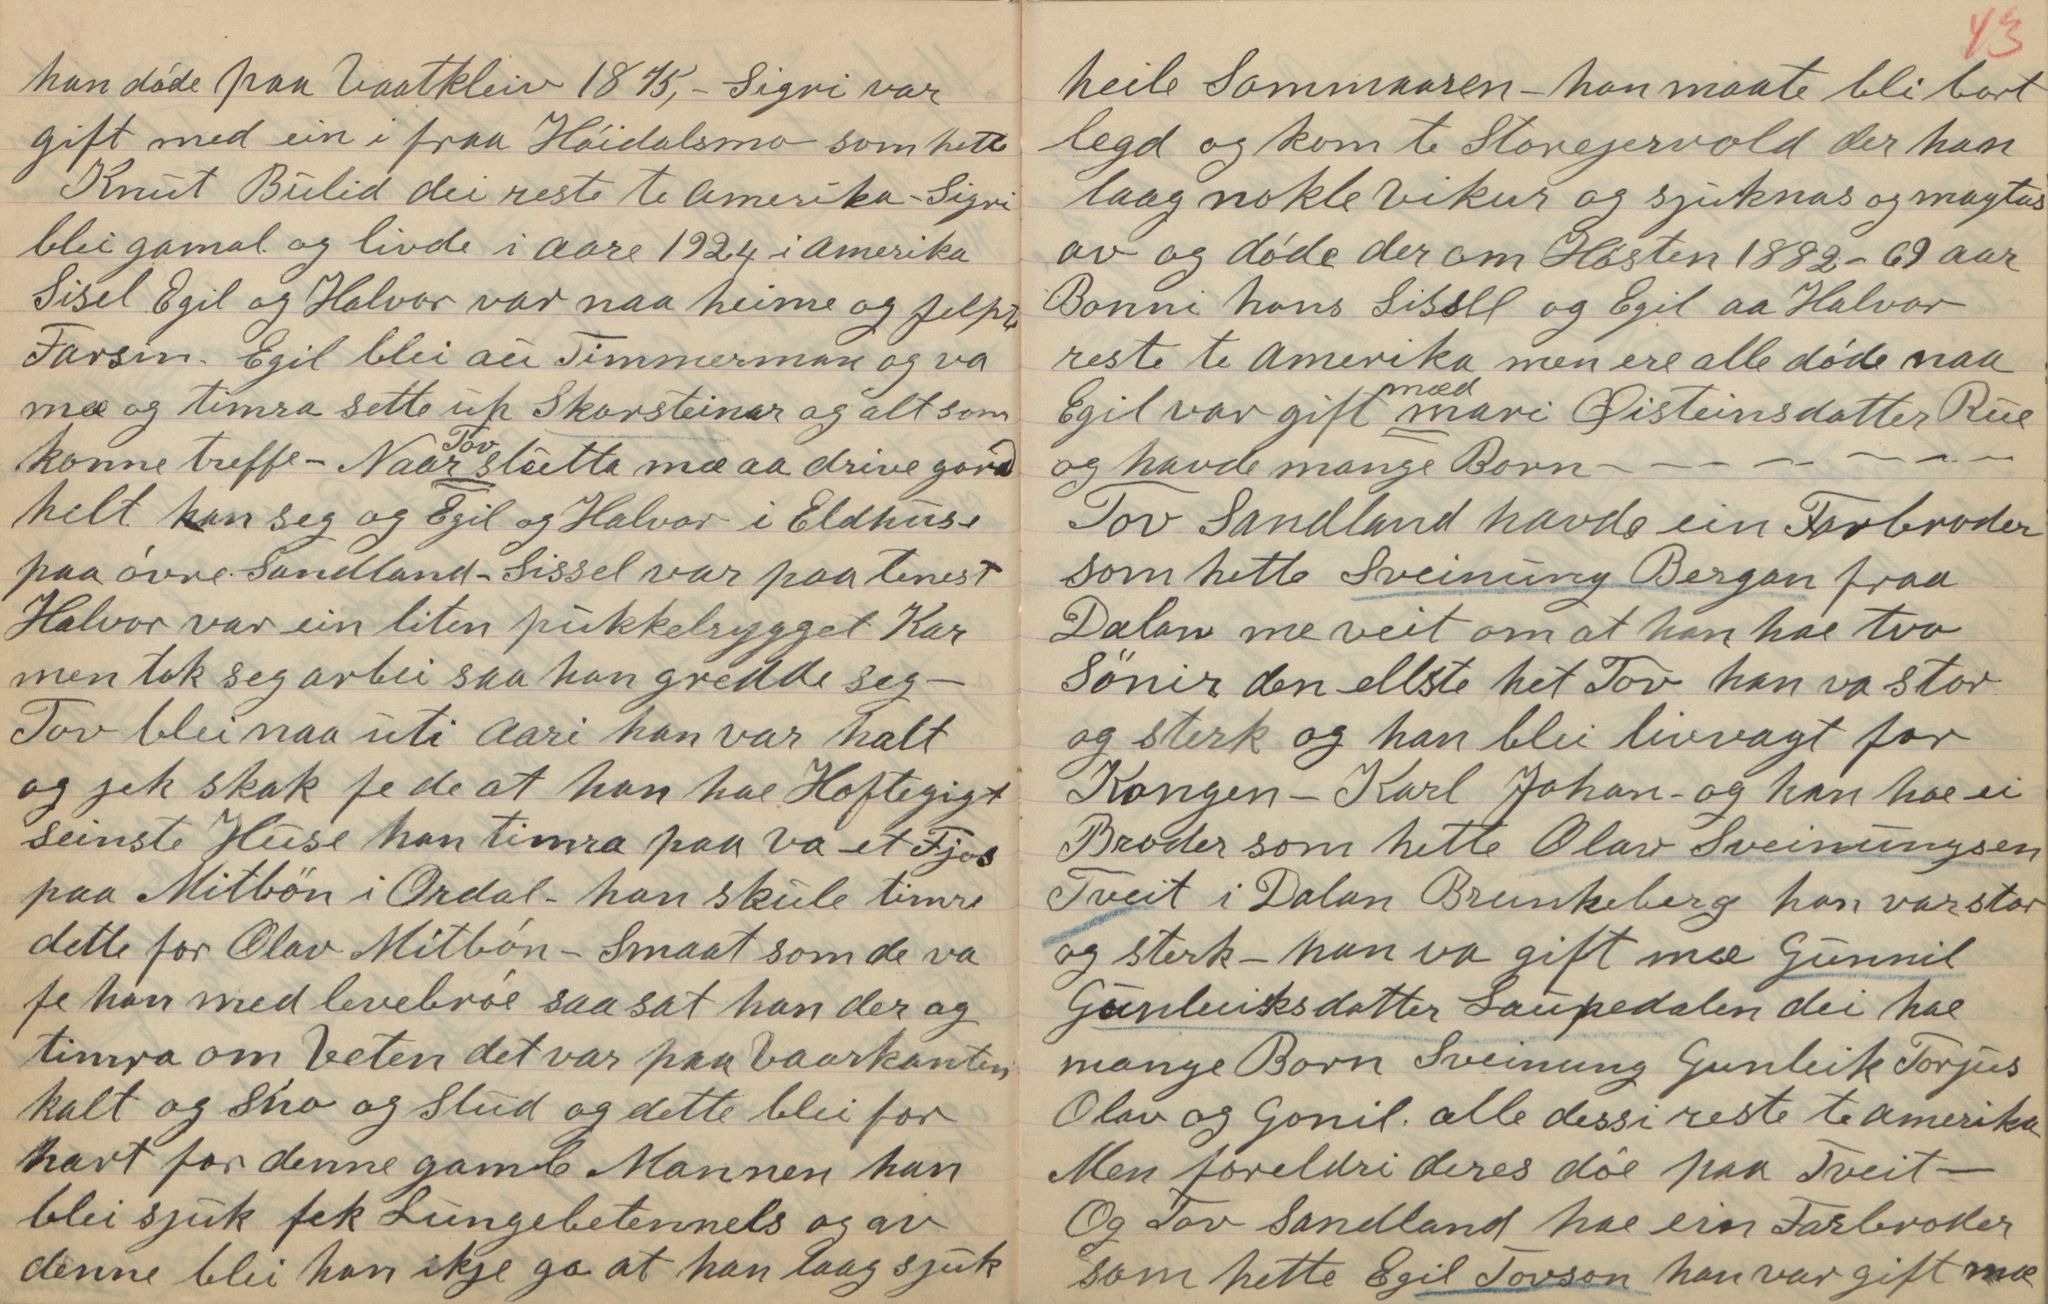 han døde paa Vaatkleiv 1875,- Sigri var
gift med ein i fraa Høidalsmo som hette
Knut Bulid dei reste te Amerika - Sigri
blei gamal og livde i aare 1924 i Amerika
Sisel Egil og Halvor var naa heime og jelpte
Farsin. Egil blei au Timmerman og va
mæ og timra sette up Skorsteinar og alt som
konne treffe - Naar Tov slutta mæ aa drive gard
helt han seg og Egil og Halvor i Eldhuse
paa øvre Sandland - Sissel var paa tenest
Halvor var ein liten pukkelrygget Kar
men tok seg arbei saa han gredde seg -
Tov blei naa uti Aari han var halt
og jek skak fe de at han hae Hoftegigt
seinste Huse han timra paa va et Fjos
paa Mitbön i Ordal - han skule timre
dette for Olav Mitbøn - Smaat som de va
fe han med levebrøe saa sat han der og
timra om Veten det var paa Vaarkanten
kalt og Sno og Slud og dette blei for
hart for denne gamle Mannen han
blei sjuk fek Lungebetennels og av
denne blei han ikje go at han laag sjuk
43
heile Sommaaren - han maate bli bort
legd og kom te Storejervold der han
laag nokle Vikur og sjuknas og magtas
av og døde der om Høsten 1882 - 69 aar
Bonni hans Sissll og Egil aa Halvor
reste te Amerika men ere alle døde naa
Egil var gift med mari Øisteinsdatter Rue
og havde mange Born - - - - - - - -
Tov Sandland havde ein Farbroder
som hette Sveinung Bergan fraa
Dalan me veit om at han hae tvo
Sönir den ellste het Tov han va stor
og sterk og han blei livvagt for
Kongen - Karl Johan - og han hae ei
Broder som hette Olav Sveinungsen
Tveit i Dalan Brunkeberg han var stor
og sterk - han va gift mæ Gunnil
Gunleiksdatter Laupedalen dei hae
mange Born Sveinung Gunleik Torjus
Olav og Gonil. alle dessi reste te Amerika
Men foreldri deres døe paa Tveit -
Og Tov Sandland hae ein Farbroder
som hette Egil Tovson han var gift mæ